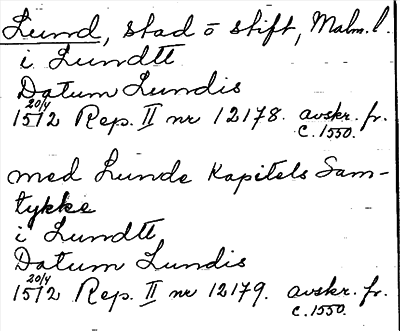 Lund, stad o stift, Malm. l.
i Lundtt
Datum Lundis
20/4
1512 Rep. II nr 12178. avskr. fr.
c. 1550.
med Lunde Kapitels Sam-
tykke
i Lundtt
Datum Lundis
20/4
1512 Rep. II nr 12179. avskr. fr.
c. 1550.